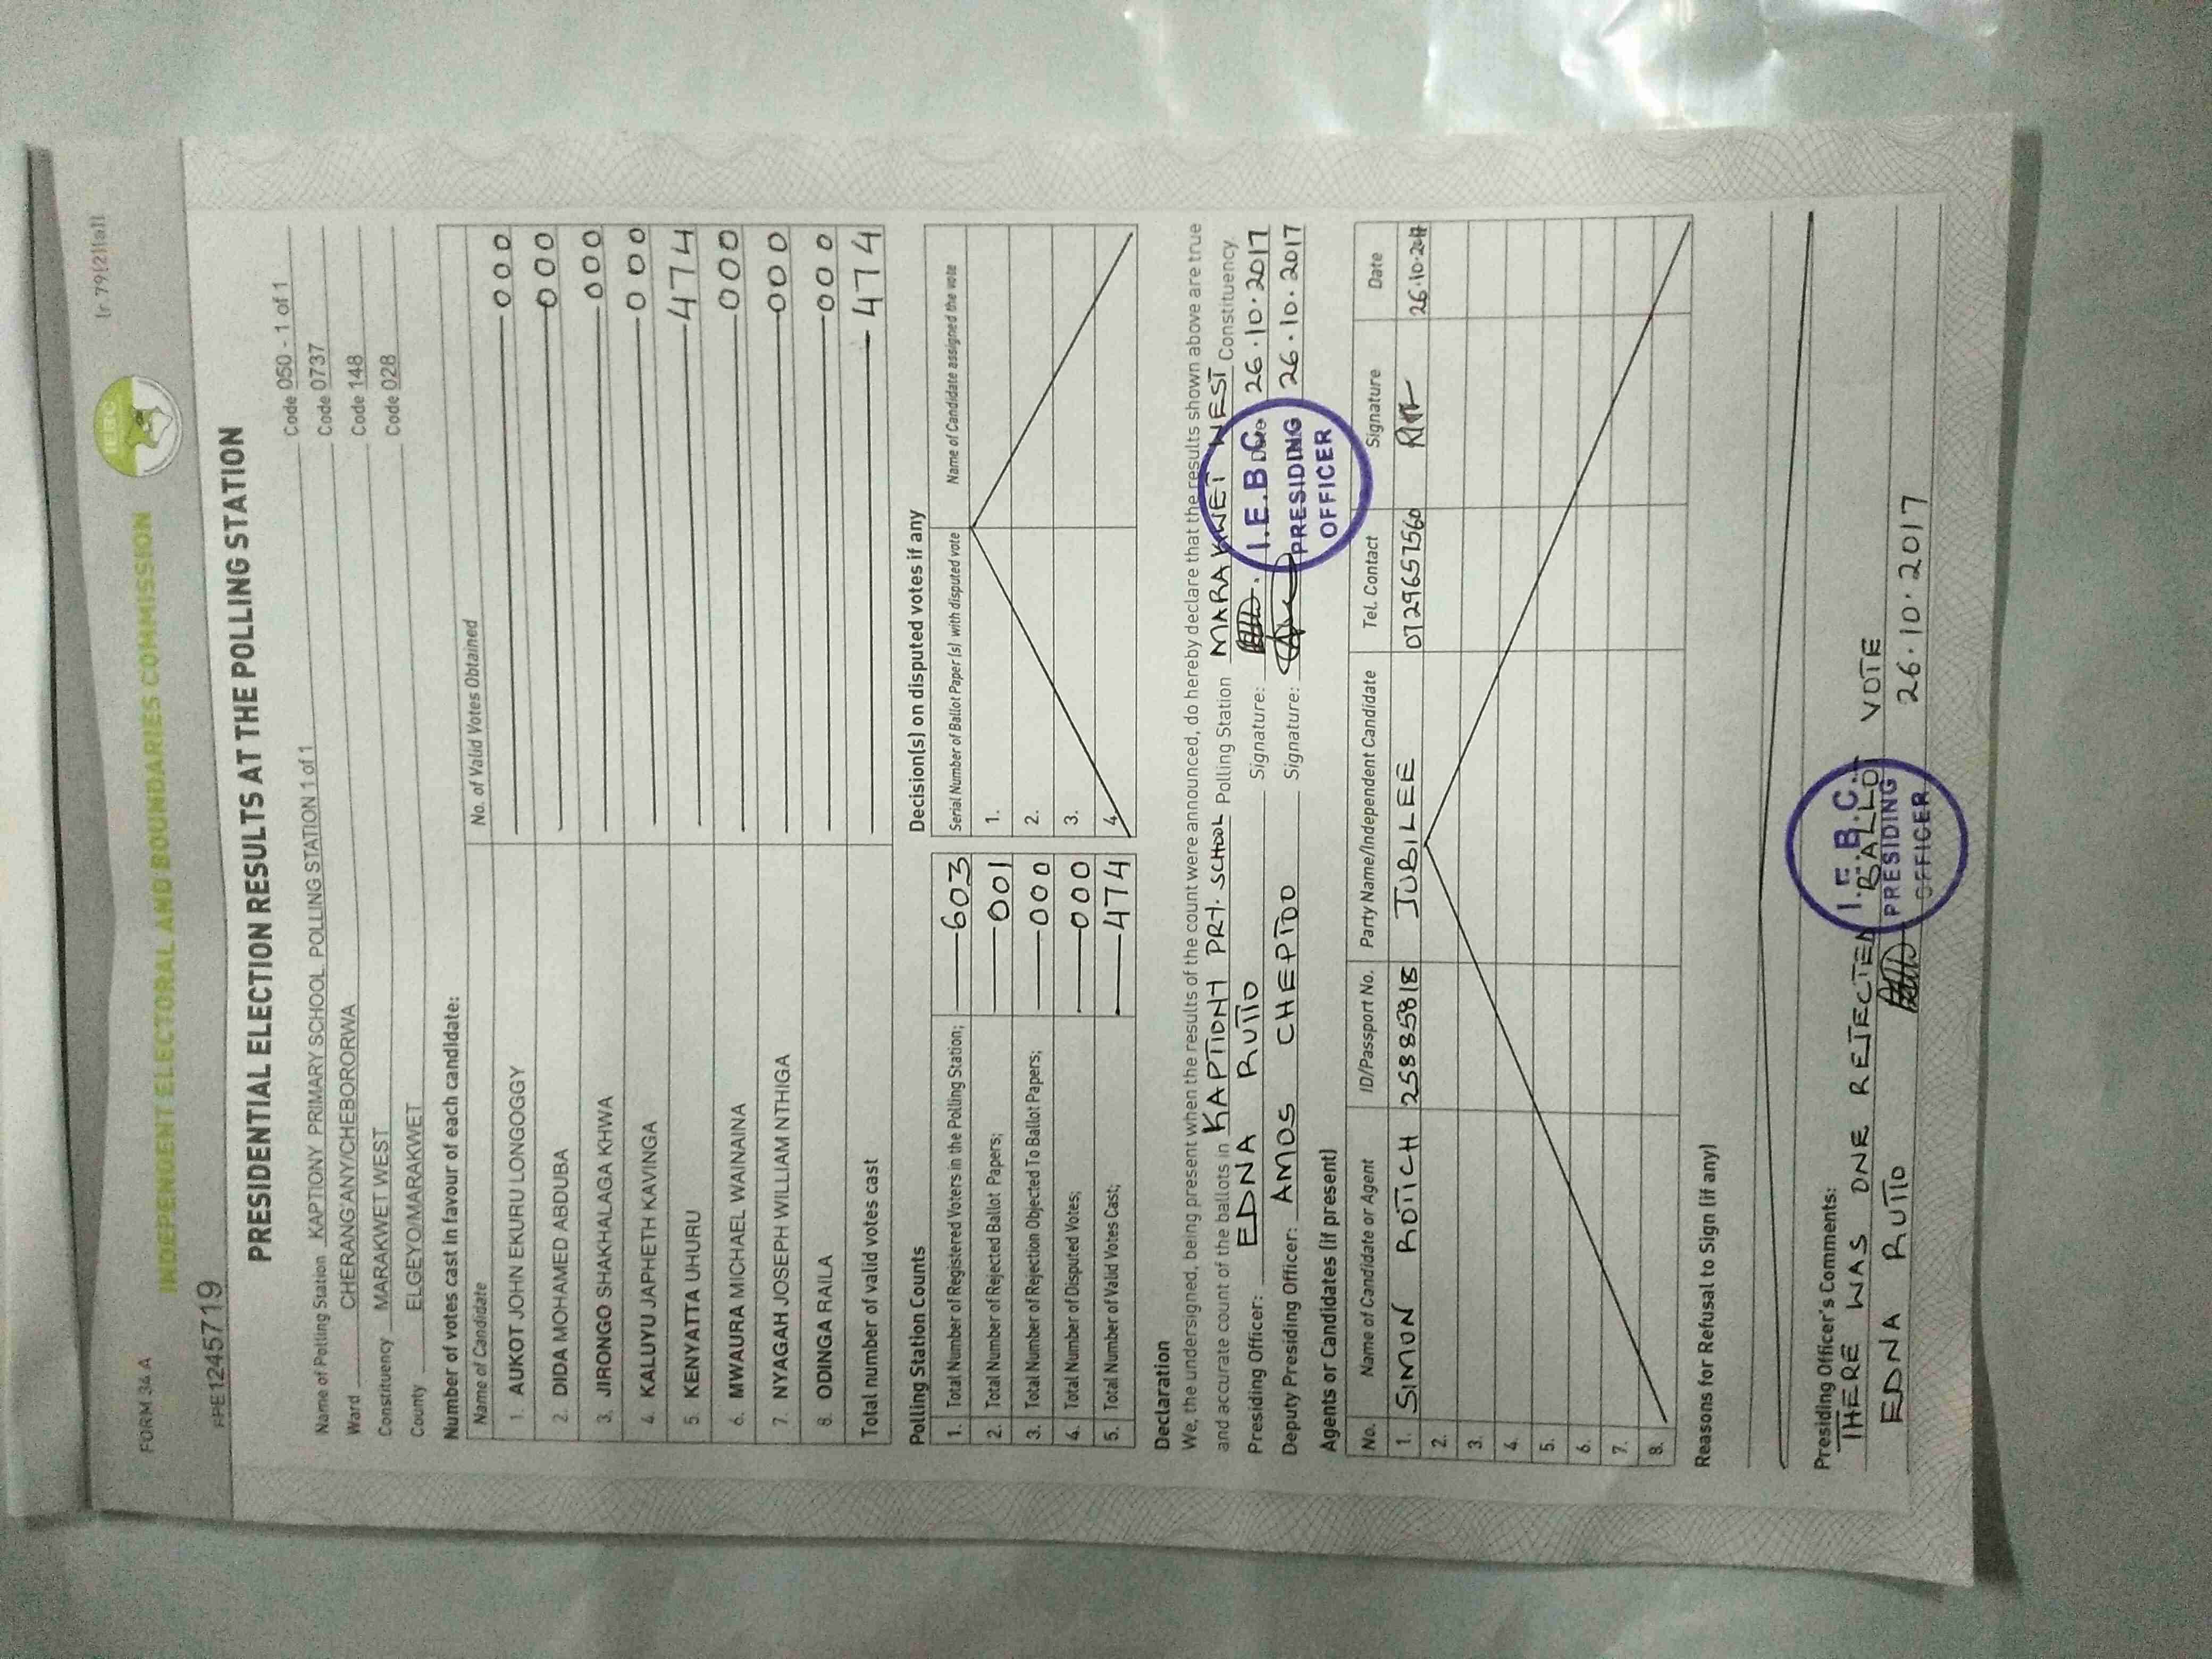 FORM 34 A
(r 79(2)(a))
IEBC
INDEPENDENT ELECTORAL AND BOUNDARIES COMMISSION
PPE1245719
PRESIDENTIAL ELECTION RESULTS AT THE POLLING STATION
Name of Polling Station KAPTIONY PRIMARY SCHOOL POLLING STATION 1 of 1 Code 050 - 1 of 1
Ward CHERANG'ANY/CHEBORORWA Code 0737
Constituency MARAKWET WEST Code 148
County ELGEYO/MARAKWET Code 028
Number of votes cast in favour of each candidate:
Name of Candidate No. of Valid Votes Obtained
1. AUKOT JOHN EKURU LONGOGGY 000
2. DIDA MOHAMED ABDUBA 000
3. JIRONGO SHAKHALAGA KHWA 000
4. KALUYU JAPHETH KAVINGA 000
5. KENYATTA UHURU 474
6. MWAURA MICHAEL WAINAINA 000
7. NYAGAH JOSEPH WILLIAM NTHIGA 000
8. ODINGA RAILA 000
Total number of valid votes cast 474
Polling Station Counts
1. Total Number of Registered Voters in the Polling Station; 603
2. Total Number of Rejected Ballot Papers; 001
3. Total Number of Rejection Objected To Ballot Papers; 000
4. Total Number of Disputed Votes; 000
5. Total Number of Valid Votes Cast; 474
Decision(s) on disputed votes if any
Serial Number of Ballot Paper (s) with disputed vote Name of Candidate assigned the vote
1.
2.
3.
4.
Declaration
We, the undersigned, being present when the results of the count were announced, do hereby declare that the results shown above are true
and accurate count of the ballots in KAPTIONY PRY. SCHOOL Polling Station MARAKWET WEST Constituency.
Presiding Officer: EDNA RUTTO Signature: Date 26.10.2017
Deputy Presiding Officer: AMOS CHEPTOO Signature: 26.10.2017
I.E.B.C.
PRESIDING
OFFICER
Agents or Candidates (if present)
No. Name of Candidate or Agent ID/Passport No. Party Name/Independent Candidate Tel. Contact Signature Date
1. SIMON ROTICH 25885818 JUBILEE 0729657560 26.10.2017
2.
3.
4.
5.
6.
7.
8.
Reasons for Refusal to Sign (if any)
Presiding Officer's Comments:
THERE WAS ONE REJECTED BALLOT VOTE
EDNA RUTTO 26.10.2017
I.E.B.C.
PRESIDING
OFFICER